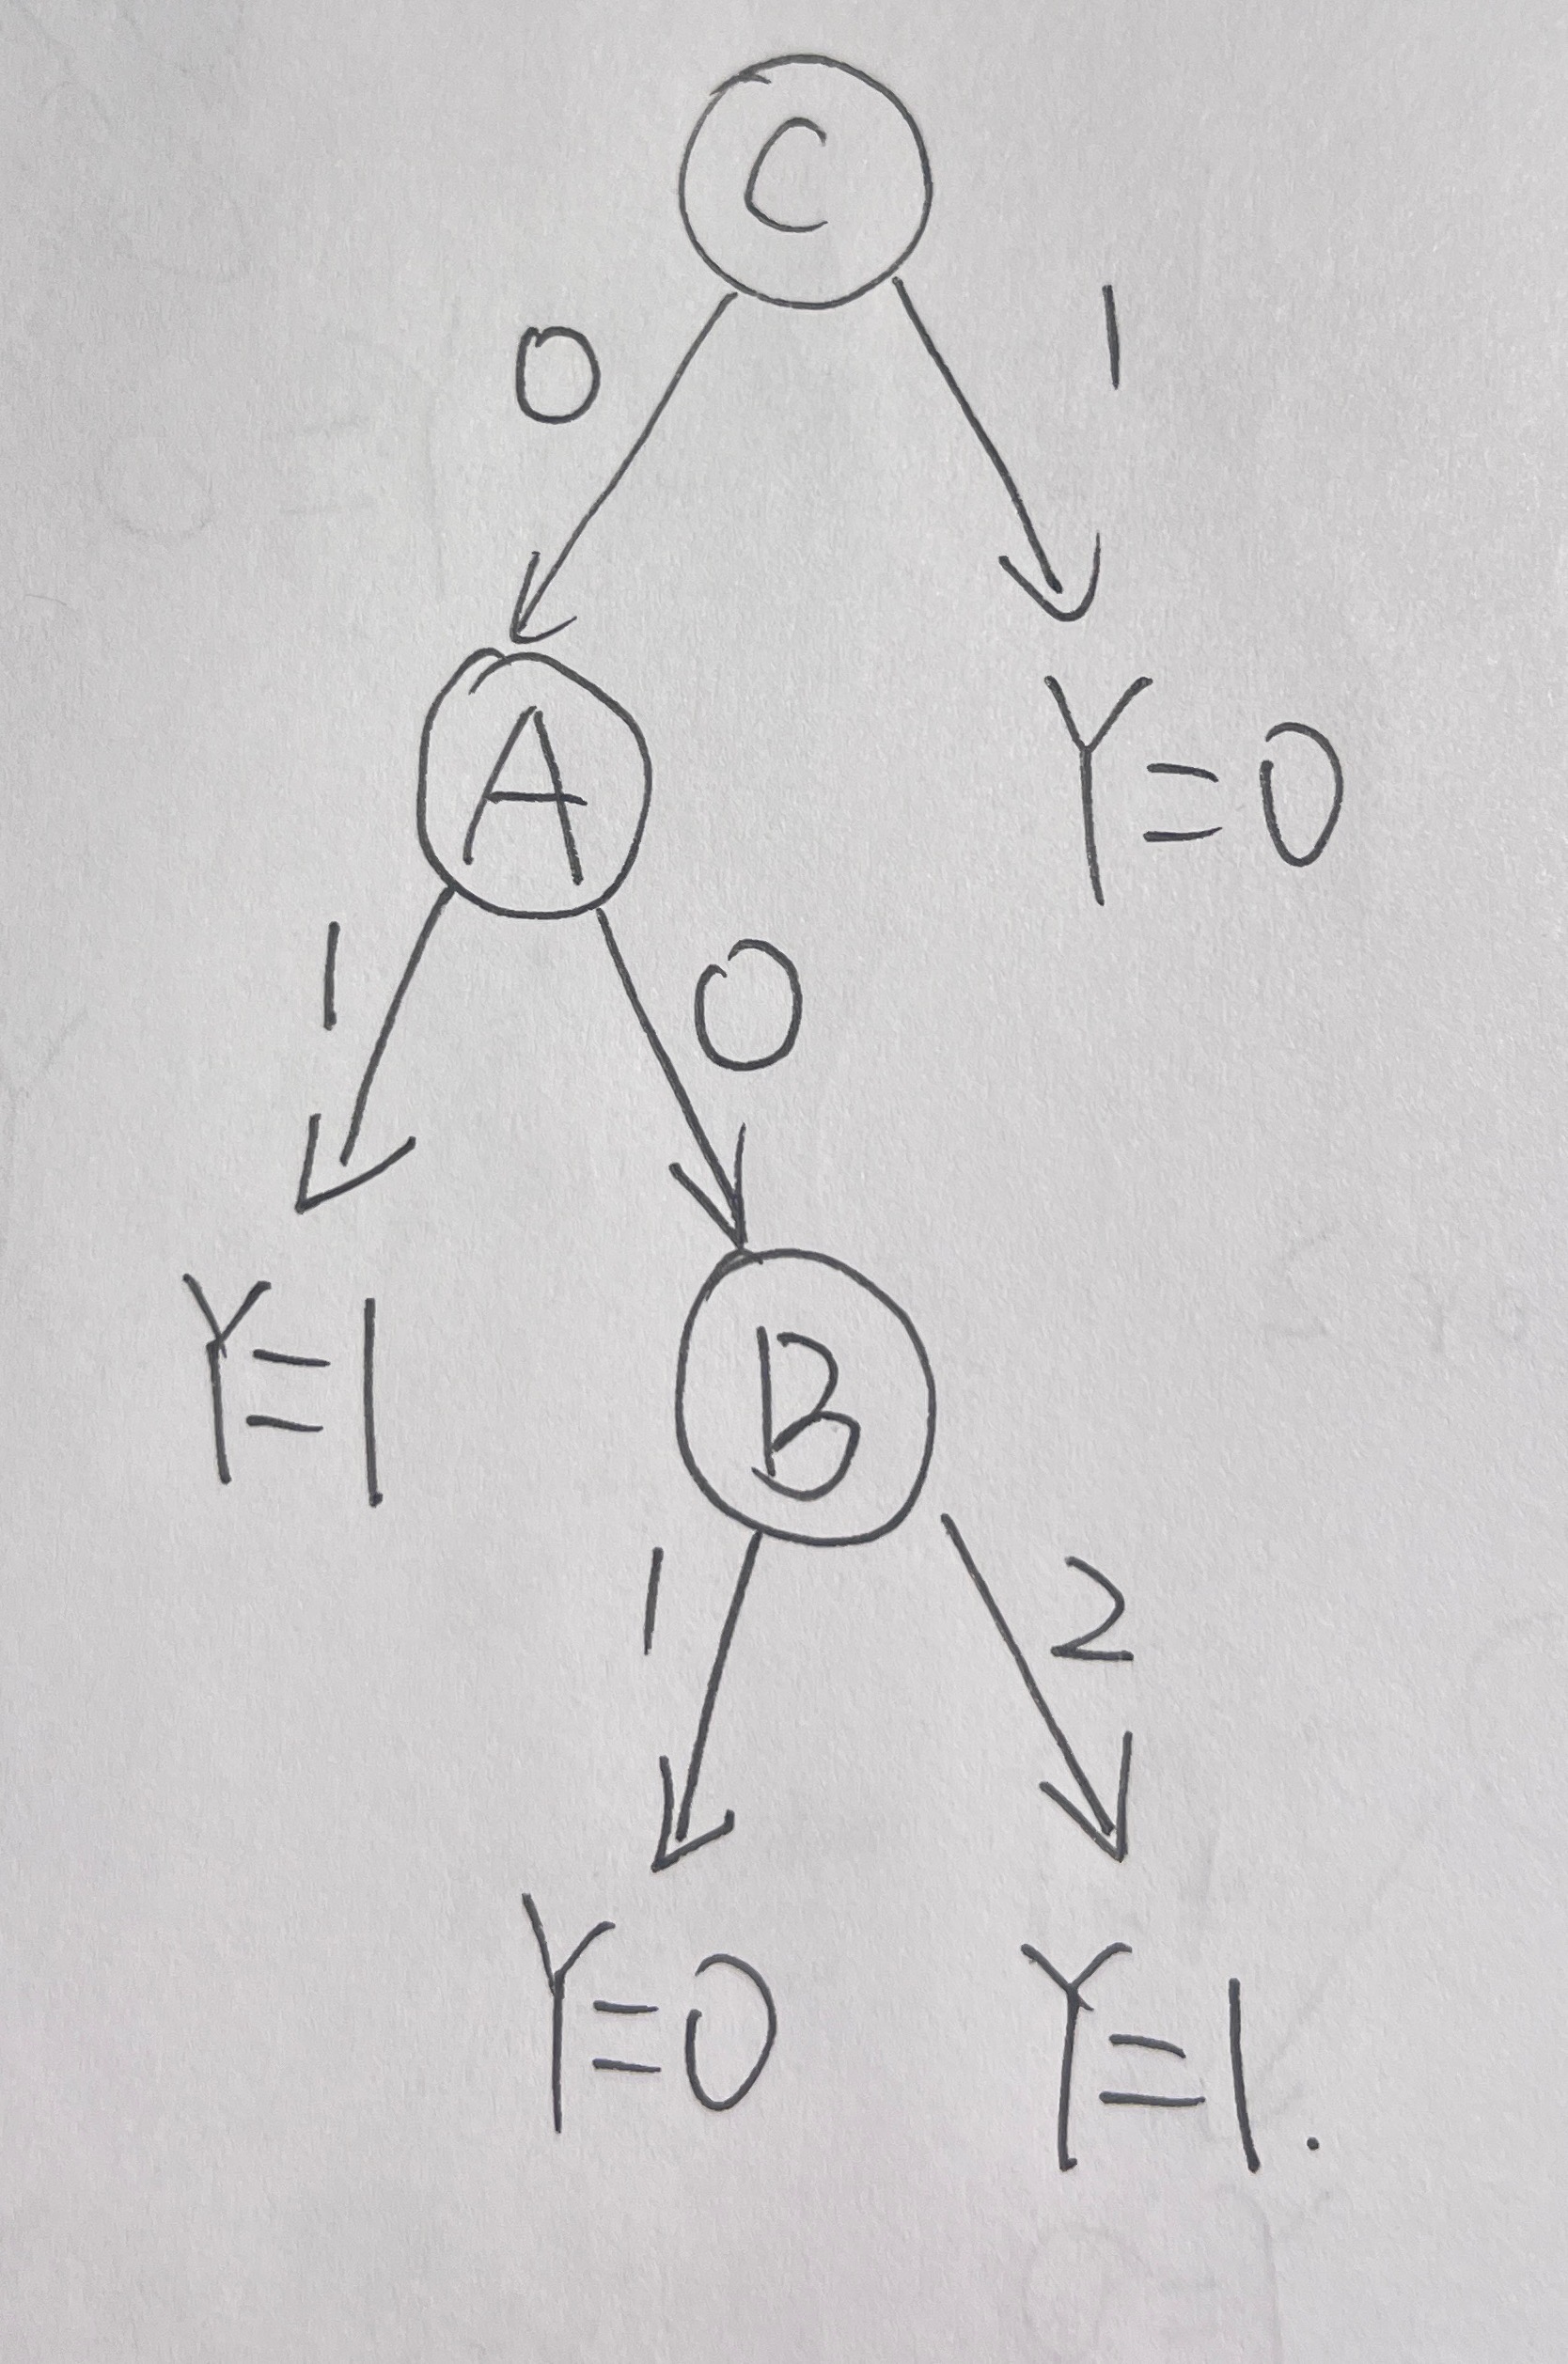 C
0 1
A
Y=0
1 0
Y=1
B
1 2
Y=0 Y=1.